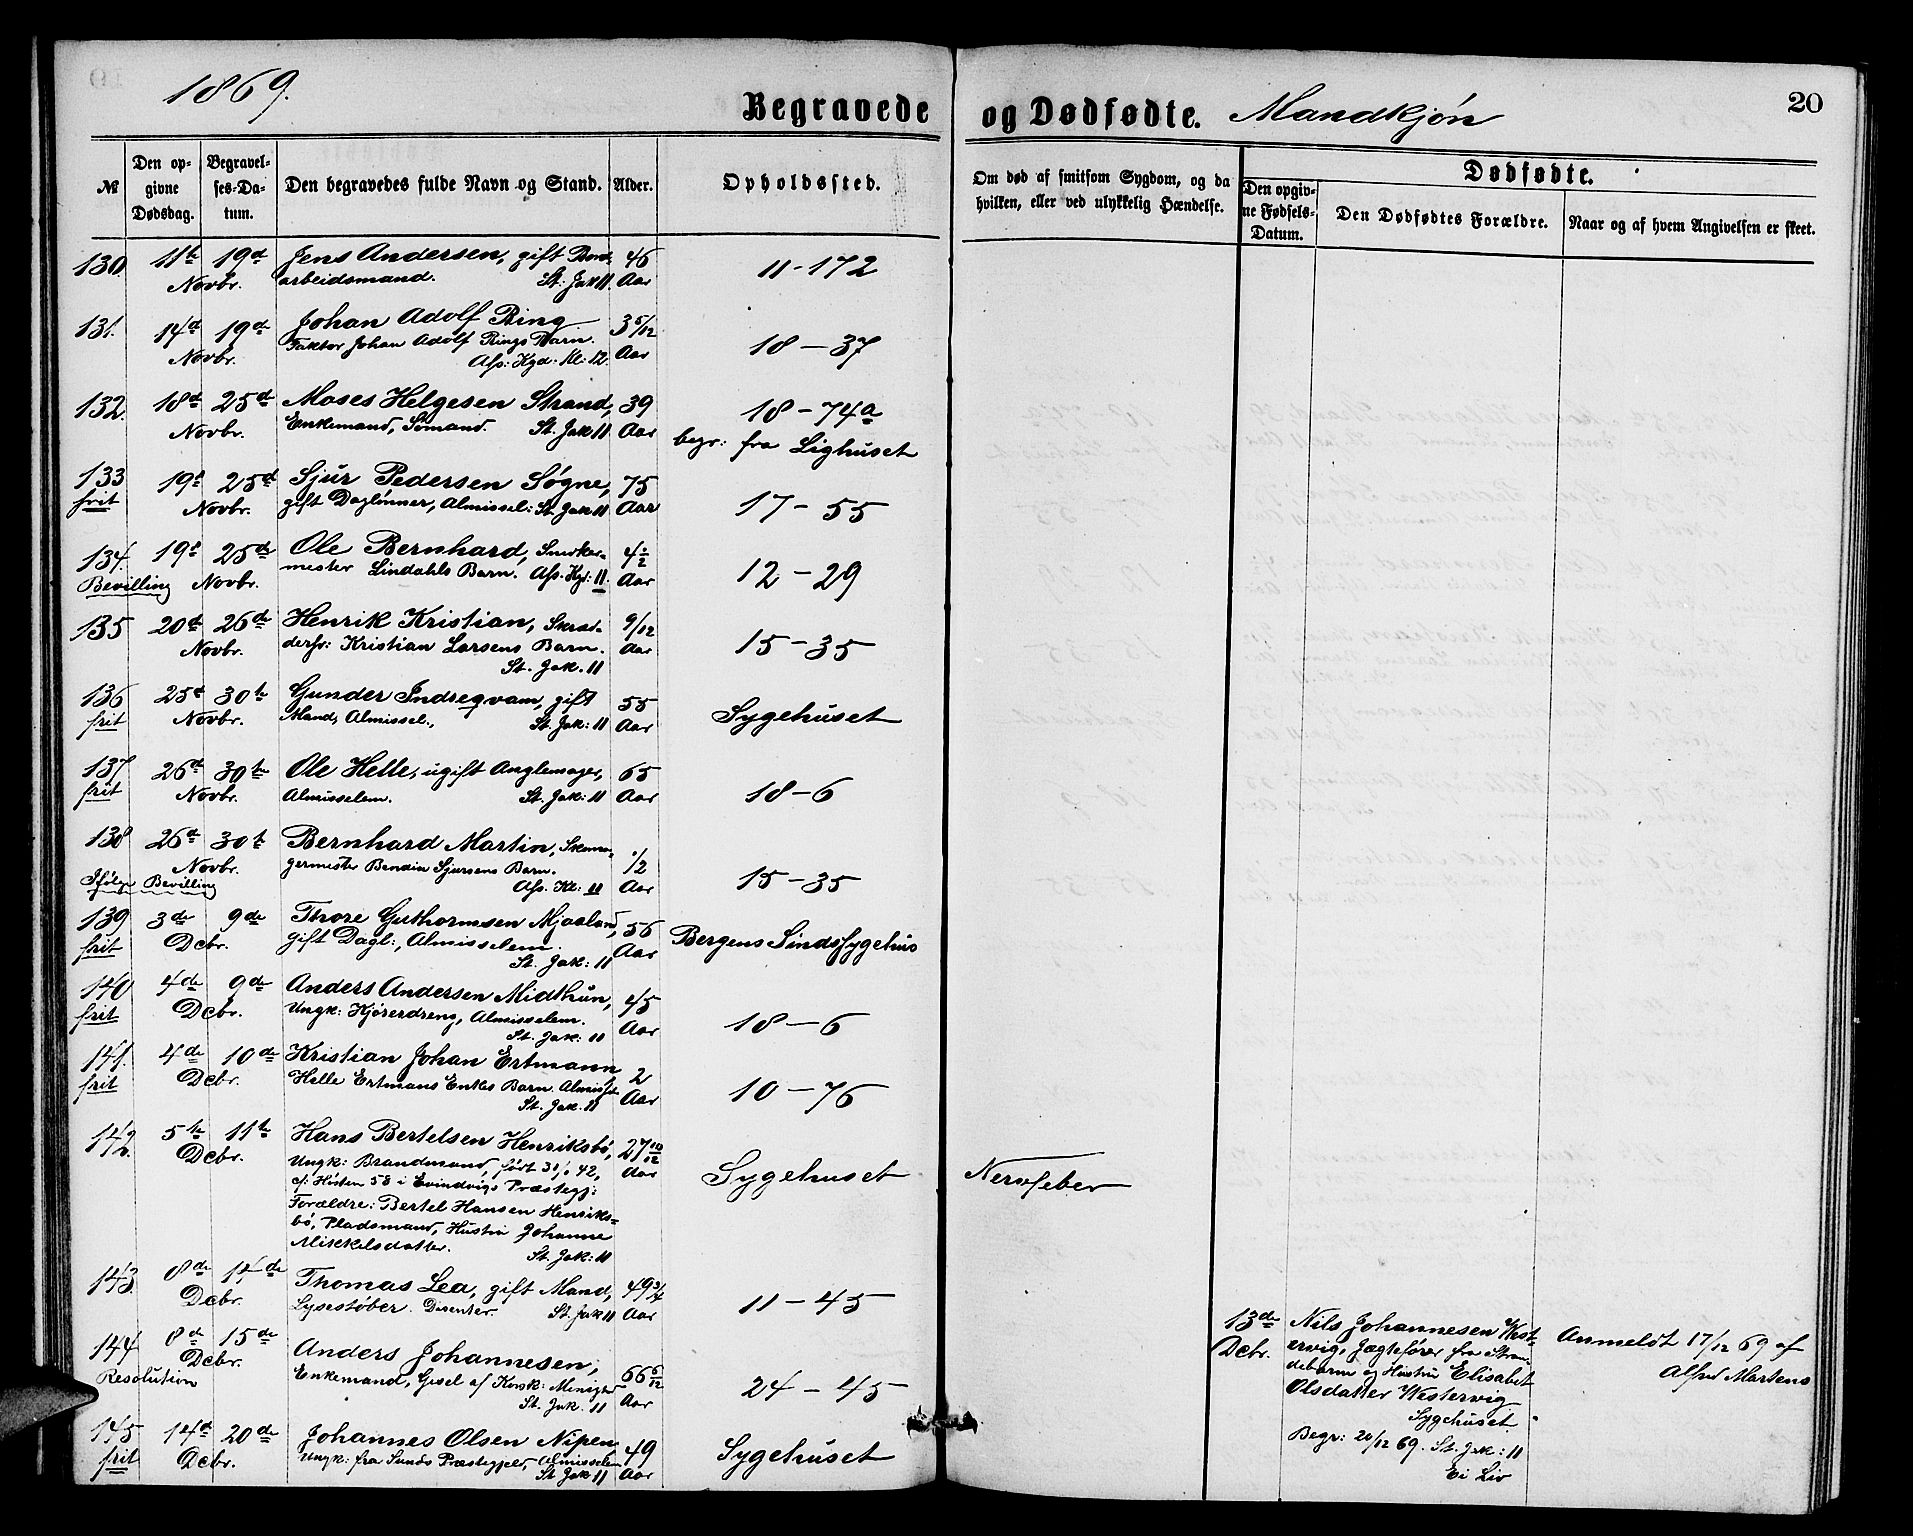 1869.
Begravede og Dødfødte. Mandkjøn
20
№
Den opgivne Dødsdag.
Begravelses-Datum.
Den begravedes fulde Navn og Stand.
Alder.
Opholdssted.
Om død af smitsom Sygdom, og da hvilken, eller ved ulykkelig Hændelse.
Dødfødte.
Den opgivne Fødsels-Datum.
Den Dødfødtes Forældre.
Naar og af hvem Angivelsen er skeet.
130. 11te 19d Jens Andersen, gift Bord- 46 11-172
Novbr. arbeidsmand. St. Jak 11. Aar
131. 14d 19d Johan Adolf Ring 3 5/12 18-37
Novbr. Faktor Johan Adolf Rings Barn. Aar
Ass: Kgd: Kl: 12.
132. 18d 25d Moses Helgesen Strand, 39 18-74a
Novbr. Enkemand, Sømand. St. Jak 11 Aar begr: fra Lighuset
133 19de 25d Sjur Pedersen Søgne, 75 17-55
frit Novbr. gift Daglønner, Almissel: St. Jak 11 Aar
134. 19de 25de Ole Bernhard, Snedker- 4 1/2 12-29
Bevilling Novbr. mester Lindahls Barn. Ass. Kgd: 11. Aar
135 20d 26de Henrik Kristian, Skræd- 9/12 15-35
Novbr. dersv: Kristian Larsens Barn. Aar
St. Jak. 11
136 25d 30te Gunder Indreqvam, gift 55 Sygehuset
frit Novbr. Mand, Almissel., St. Jak: 11 Aar
137 26d 30te Ole Helle, ugift Anglemager, 65 18-6
frit Novbr. Almisselem. St. Jak: 11 Aar
138 26d 30te Bernhard Martin, Skoma- 1/2 15-35
Novbr. germester Bendix Sjursens Barn. Aar
Ifølge Bevilling Ass. Kl: 11
139 3de 9de Thore Guthormsen Mjaaland, 56 Bergens Sindssygehus
frit Dcbr. gift Dagl:, Almisselem. Aar
St. Jak: 11
140 4de 9de Anders Andersen Midthun, 45 18-6
frit Dcbr. Ungk: Kjørerdreng, Almisselem. Aar
St. Jak: 11
141. 4de 10de Kristian Johan Ertmann, 2 10-76
frit Dcbr. Helle Ertmans Enkes Barn. Almisst. Aar
St. Jak. 11
142. 5te 11te Hans Bertelsen Henriksbø, 27 10/12 Sygehuset Nervefeber
Dcbr. Ungk: Brandmand, født 42, Aar
cf: Høsten 58 i Evindvigs Præstegj:
Forældre: Bertel Hansen Henriks-
bø, Pladsmand, Hustru Johanne
Mikkelsdatter. St. Jak: 11
143. 8de 14de Thomas Lea, gift Mand, 49 3/4 11-45
Dcbr. Lysestøber. Disenter. St. Jak 11 Aar
144 8de 15de Anders Johannesen, 66 6/12 24-45
Dcbr. Enkemand, Gesel af Korsk: Menighed Aar
Resolution St. Jak. 11
145 14d 20de Johannes Olsen Nipen 49 Sygehuset
frit Dcbr. Ungk: fra Sunds Præstegjeld, Almisselem Aar
St. Jak 11
13de Nils Johannesen West- Anmeldt 17/12 69 af
Dcbr. ervig, Jægtefører fra Stran- Alfred Martens
debarm og Hustru Elisabet
Olsdatter Westervig
Sygehuset.
Begr: 20/12 69. St. Jak: 11
Ei Liv